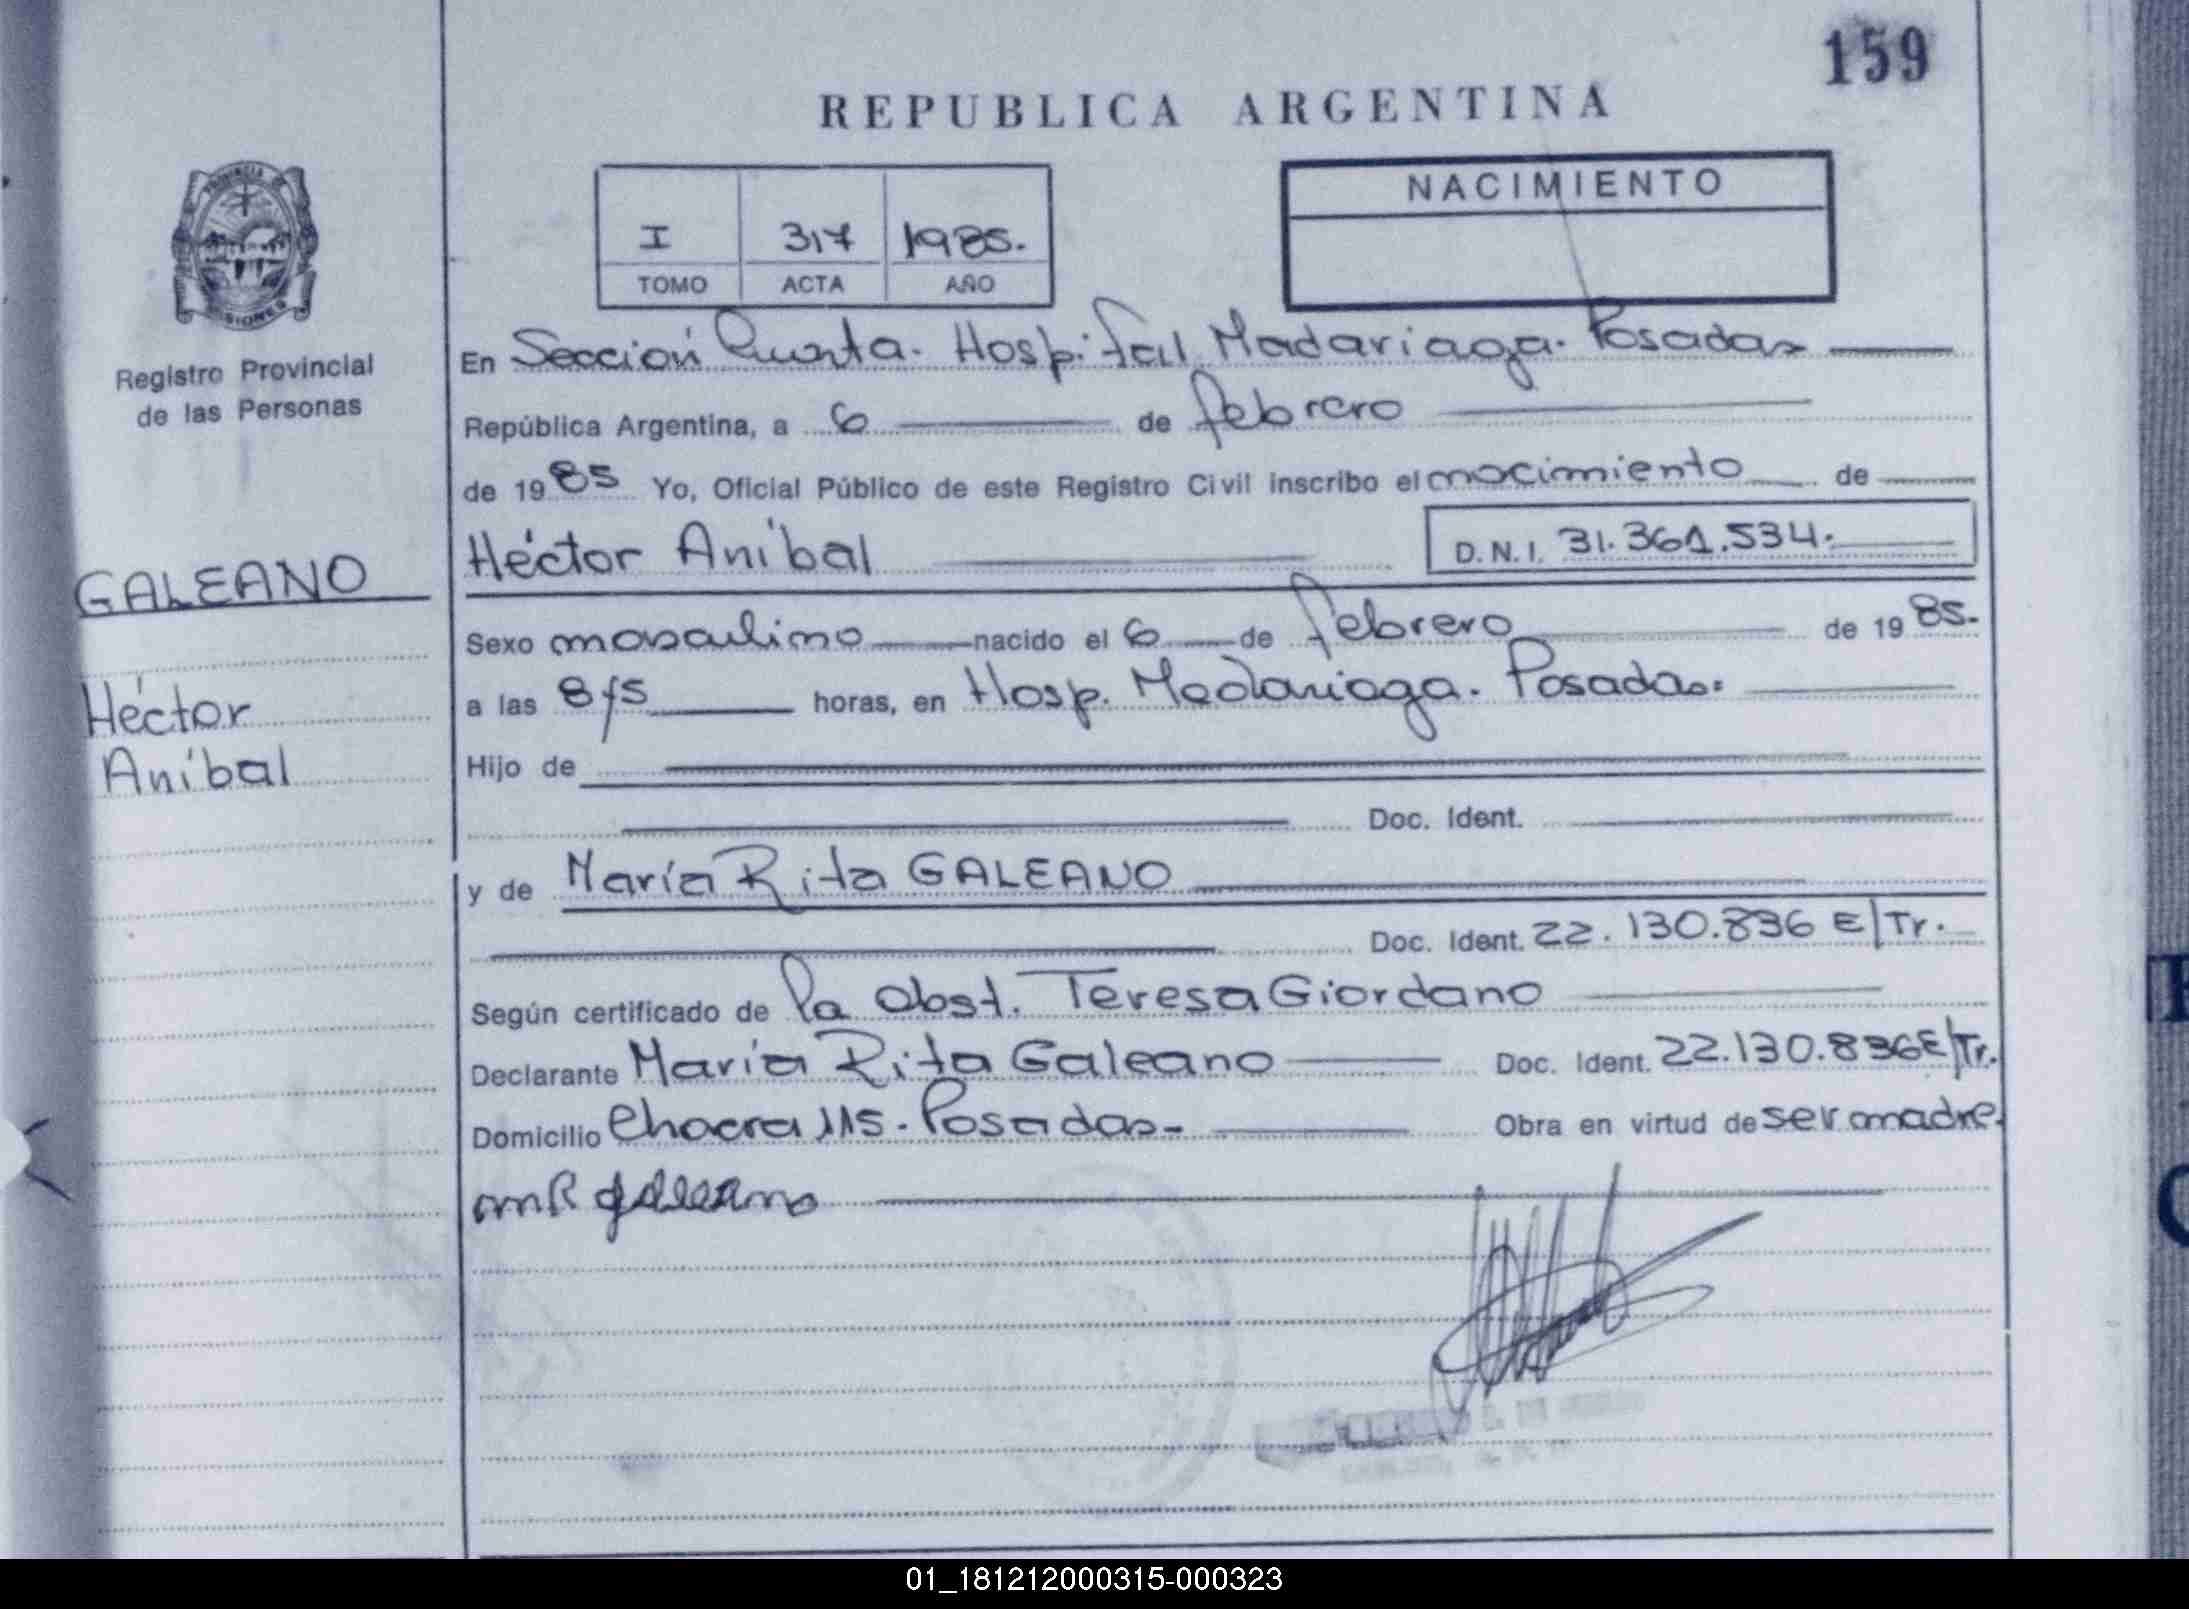 159
REPUBLICA ARGENTINA
PROVINCIA DE MISIONES
Registro Provincial
de las Personas
I 317 1985.
TOMO ACTA AÑO
NACIMIENTO
En Sección Quinta. Hospital Madariaga. Posadas
República Argentina, a 6 de febrero
de 1985 Yo, Oficial Público de este Registro Civil inscribo el nacimiento de
Héctor Aníbal D.N.I. 31.361.534.
GALEANO
Héctor
Aníbal
Sexo masculino nacido el 6 de febrero de 1985.
a las 8/5 horas, en Hosp. Madariaga. Posadas.
Hijo de
Doc. Ident.
y de María Rita GALEANO
Doc. Ident. 22.130.836 E/Tr.
Según certificado de la Obst. Teresa Giordano
Declarante María Rita Galeano Doc. Ident. 22.130.836 E/Tr.
Domicilio Chacra 115. Posadas- Obra en virtud de ser madre.
mR galeano
01_181212000315-000323